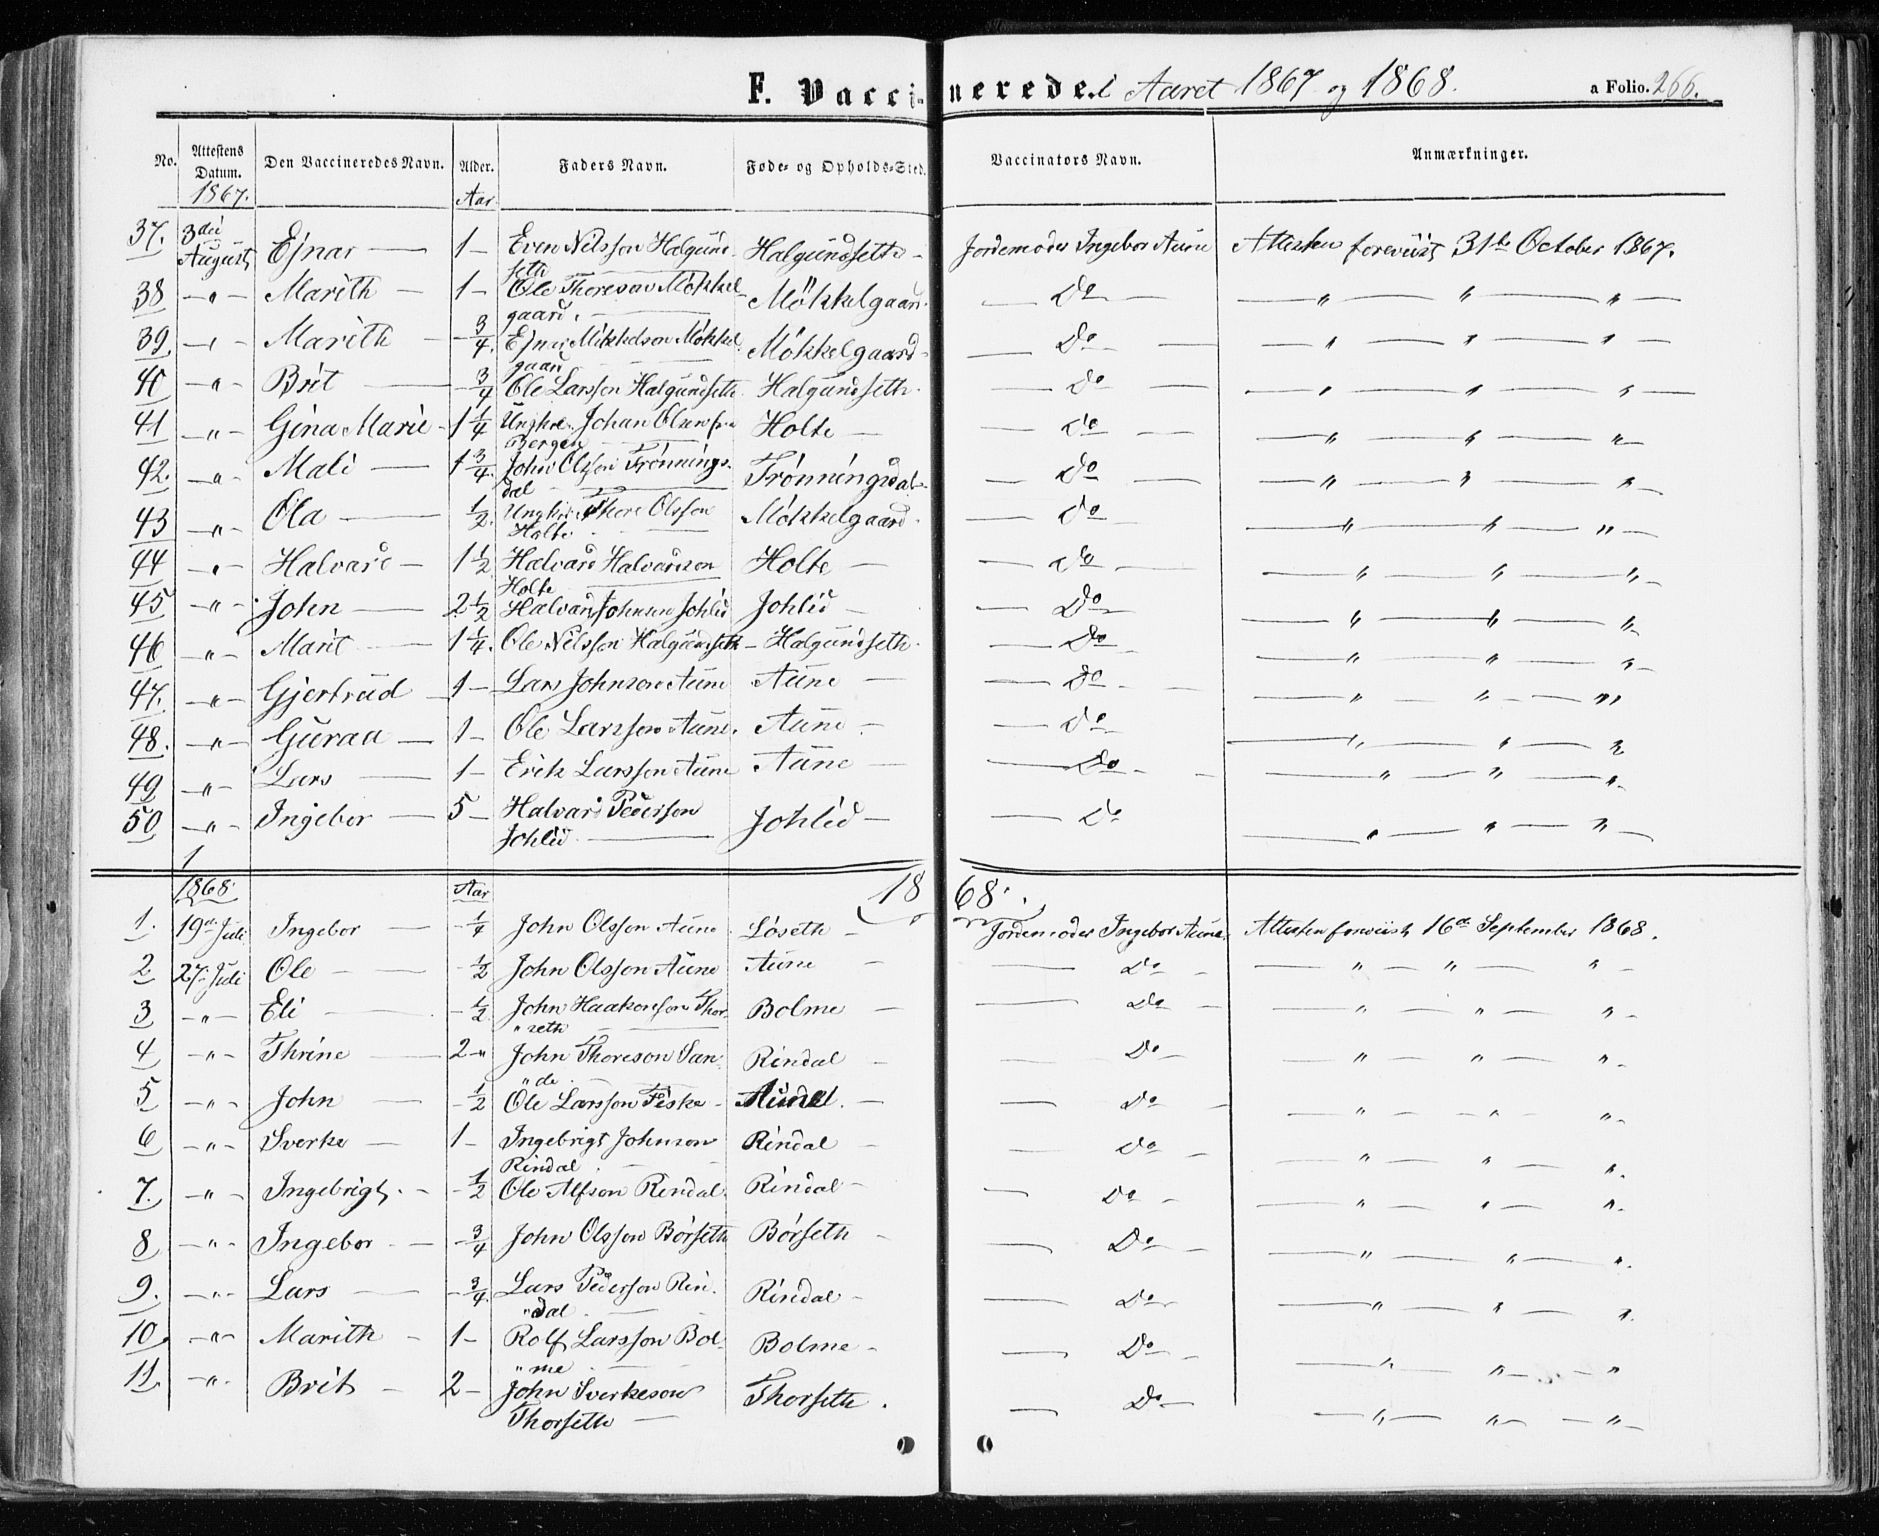 F. Vaccinerede i Aaret 1867 og 1868. a Folio. 266.
No. Attestens Datum. Den Vaccineredes Navn. Alder. Faders Navn. Føde- og Opholds-Sted. Vaccinators Navn. Anmærkninger.
1867. Aar
37. 3die August Ejnar — 1 — Even Nilsson Halgundseth Halgundseth — Jordemoder Ingebor Aune Attesten foreviist 31te October 1867.
38 — " — Marith — 1 — Ole Thoreson Møkkelgaard. — Møkkelgaard. — Do — — " — " — " —
39 — " — Marith — 3/4. Ejner Mikkelson Møkkelgaard Møkkelgaard — — Do — — " — " — " —
40 — " — Brit — 3/4 Ole Larsson Halgundseth. Halgundseth. — Do — — " — " — " —
41 — " — Gina Marie — 1 1/4 Ungkrl. Johan Olsen fra Bergen — Holte — — Do — — " — " — " —
42. — " — Mali — 1 3/4. John Olsson Trønningsdal — Trønningsdal — — Do — — " — " — " —
43 — " — Ola — 1/2. Ungkrl. Thore Olsson Holte. — Møkkelgaard. — Do — — " — " — " —
44 — " — Halvard — 1 1/2 Halvard Halvordson Holte — Holte — — Do — — " — " — " —
45 — " — John — 2 1/2 Halvard Johnsen Johlid Johlid — — Do — — " — " — " —
46 — " — Marit — 1 1/4. Ole Nilsson Halgundseth — Halgundseth. — Do — — " — " — " —
47. — " — Gjertrud — 1 — Lars Johnson Aune Aune — — Do — — " — " — " —
48. — " — Guraa — 1 — Ole Larsson Aune. Aune — — Do — — " — " — "
49 — " — Lars — 1 — Erik Larsson Aune Aune — — Do — — " — " — " —
50 — " — Ingebor — 5 — Halvard Pederson Johlid — Johlid — — Do — " — " — " —
1868. Aar 1868.
1. 19de Juli Ingebor — 1/4 John Olsson Aune Løseth — Jordemoder Ingebor Aune. Attesten foreviist 16de September 1868.
2 27. Juli Ole — 1/2 John Olsson Aune Aune — — Do — — " — " — " —
3 — " — Eli — 1/2 John Haakonson Thor"seth — Bolme — — Do — — " — " — " —
4 — " — Thrine — 2 " John Thoreson San"de. — Rindal — — Do — — " — " — " —
5 — " — John — 1/2 Ole Larsson Fiske — — — Do — — " — " — " —
6 — " — Sverke — 1 — Ingebrigt Johnson Rindal. — Rindal — — Do — — " — " — "
7. — " — Ingebrigt. — 1/2 Ole Alfson Rindal Rindal — — Do — — " — " — " —
8 — " — Ingebor — 3/4 John Olsson Børseth Børseth — — Do — — " — " — "
9. — " — Lars — 3/4. Lars Pederson Rin"dal. — Rindal — — Do — — " — " — "
10. — " — Marith — 1 — Rolf Larsson Bol"me. — Bolme — — Do — — " — " — "
11. — " Brit — 2 — John Sverkeson Thorseth — Thorseth. — Do — — " — " — " —